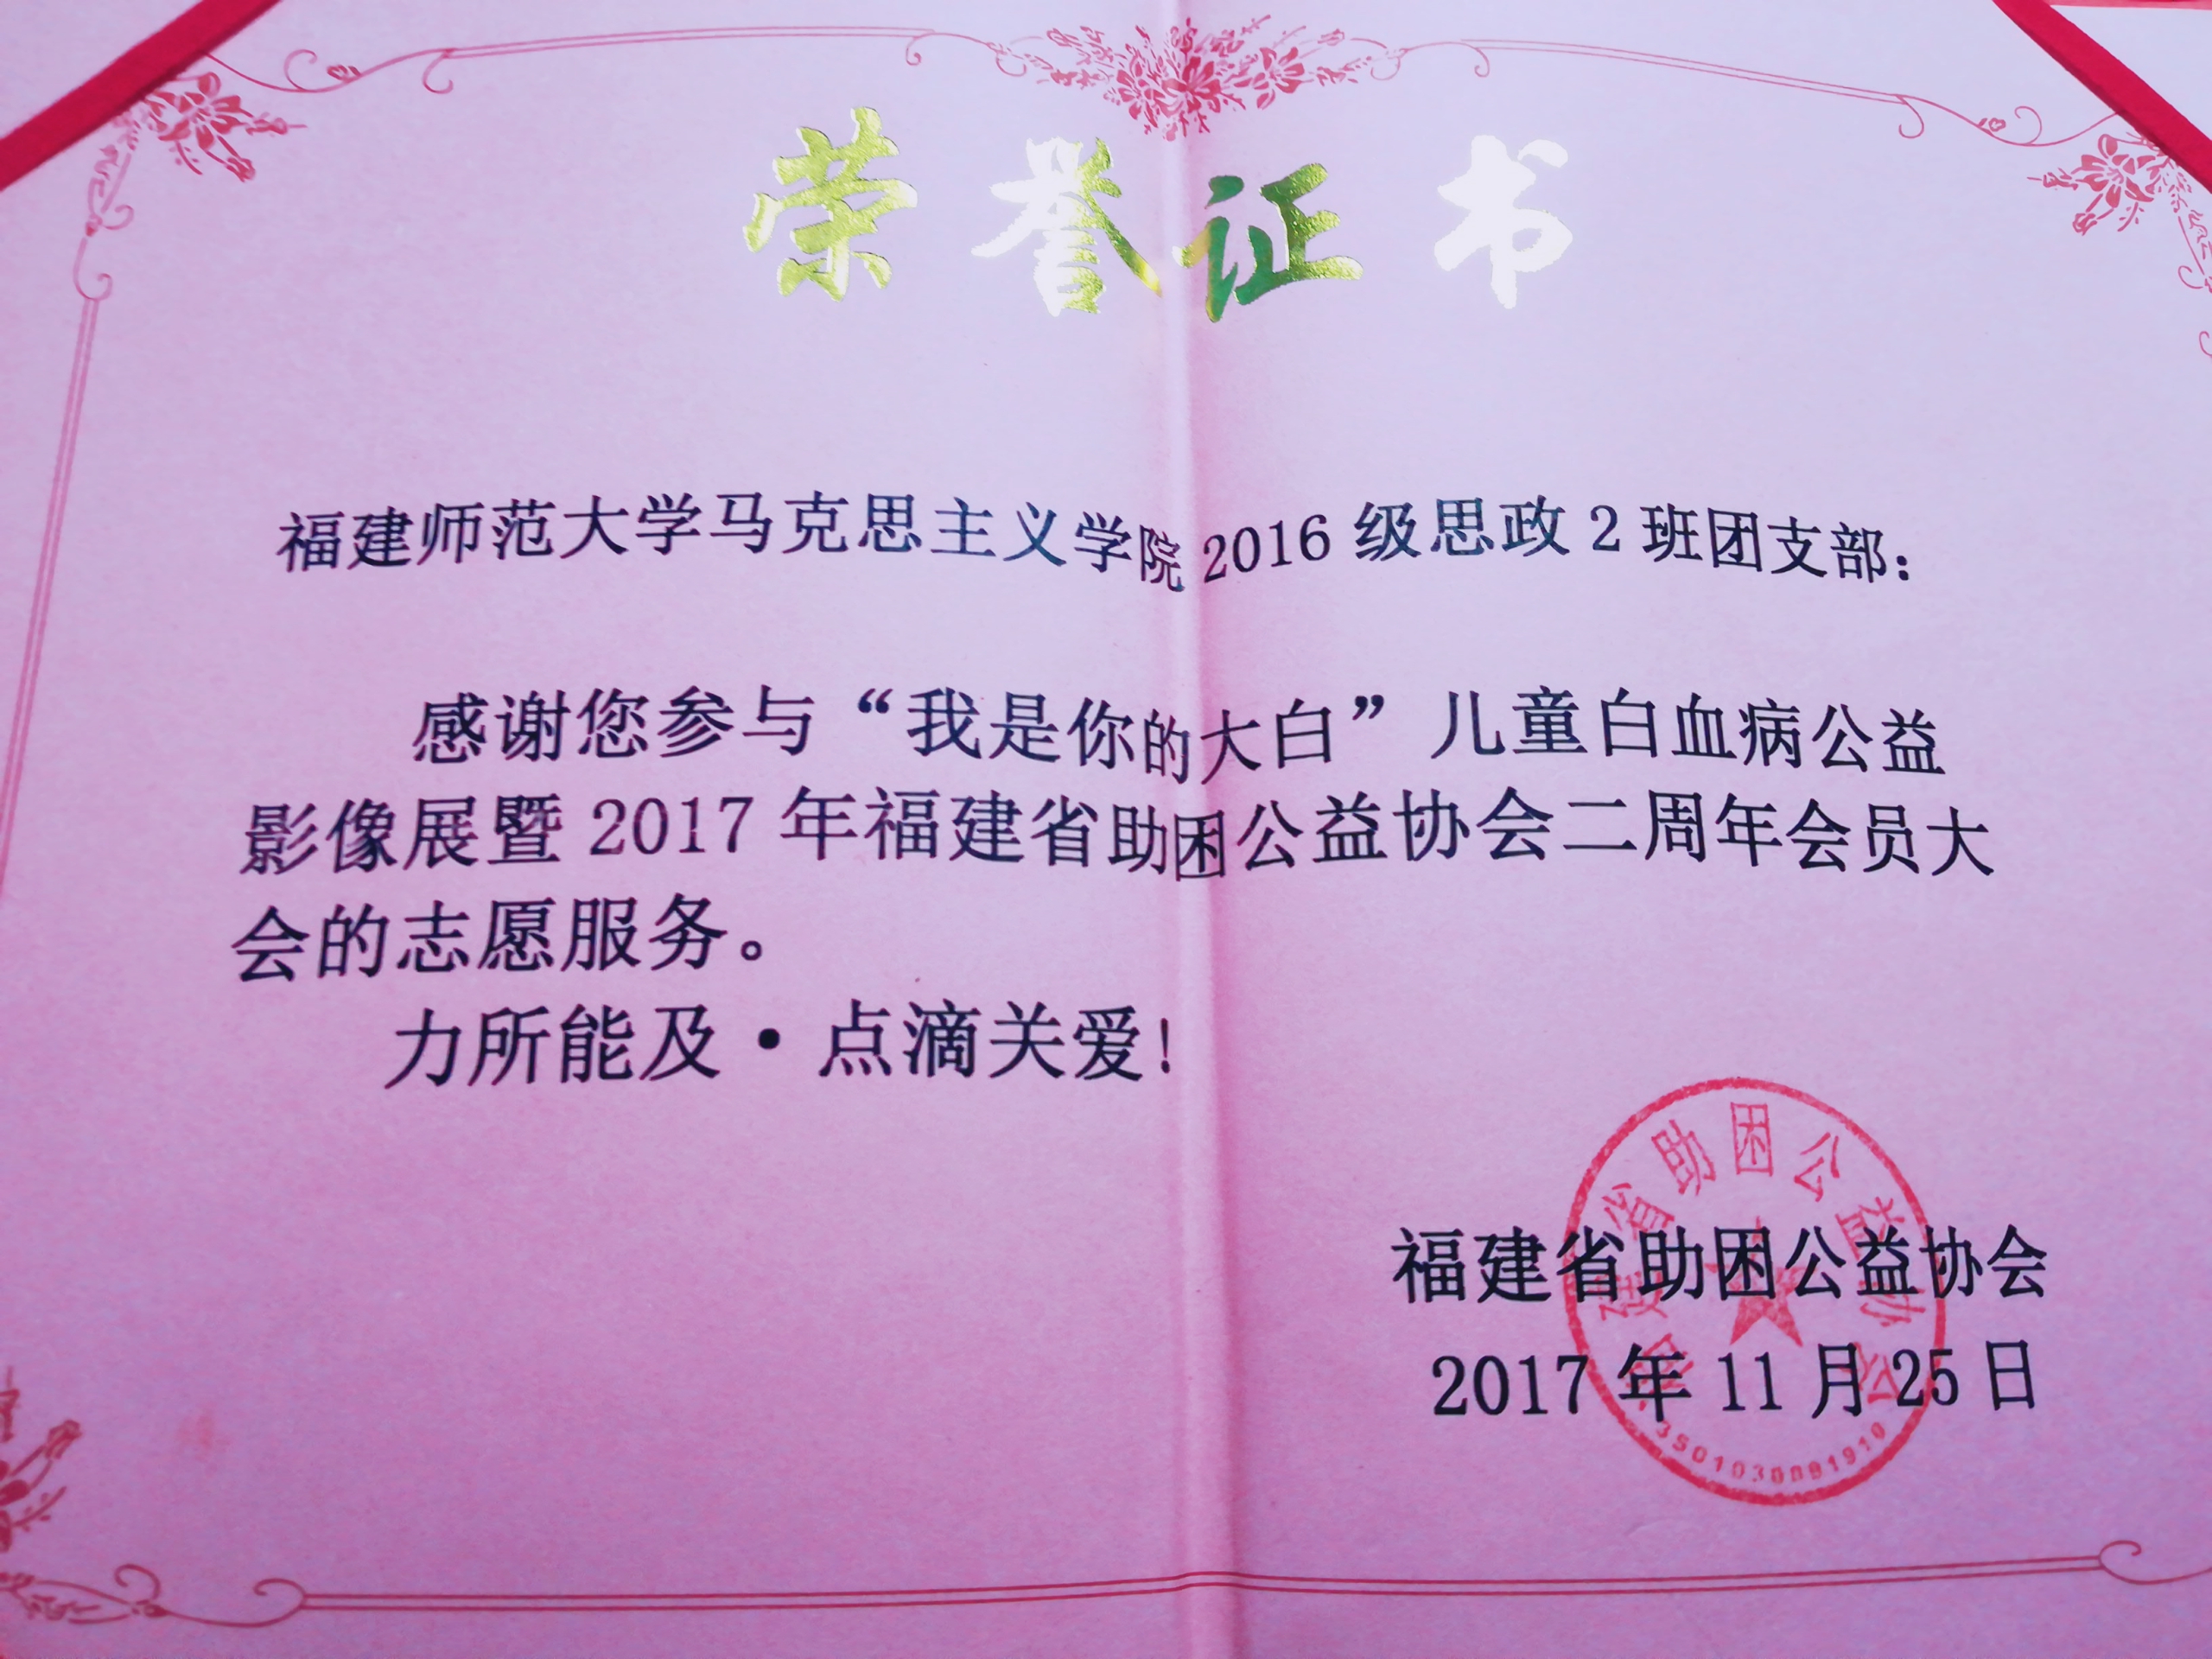 荣誉证书
福建师范大学马克思主义学院2016级思政2班团支部：
感谢您参与“我是你的大白”儿童白血病公益
影像展暨2017年福建省助困公益协会二周年会员大
会的志愿服务。
力所能及·点滴关爱！
福建省助困公益协会
2017年11月25日
福建省助困公益协会